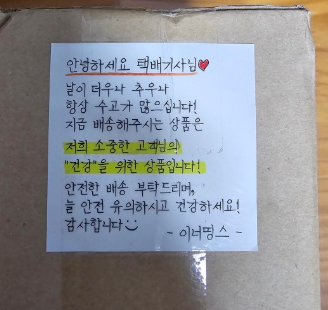 안녕하세요 택배기사님♥
날이 더우나 추우나
항상 수고가 많으십니다!
지금 배송해주시는 상품은
저희 소중한 고객님의
"건강"을 위한 상품입니다!
안전한 배송 부탁드리며,
늘 안전 유의하시고 건강하세요!
감사합니다
- 이너띵스 -